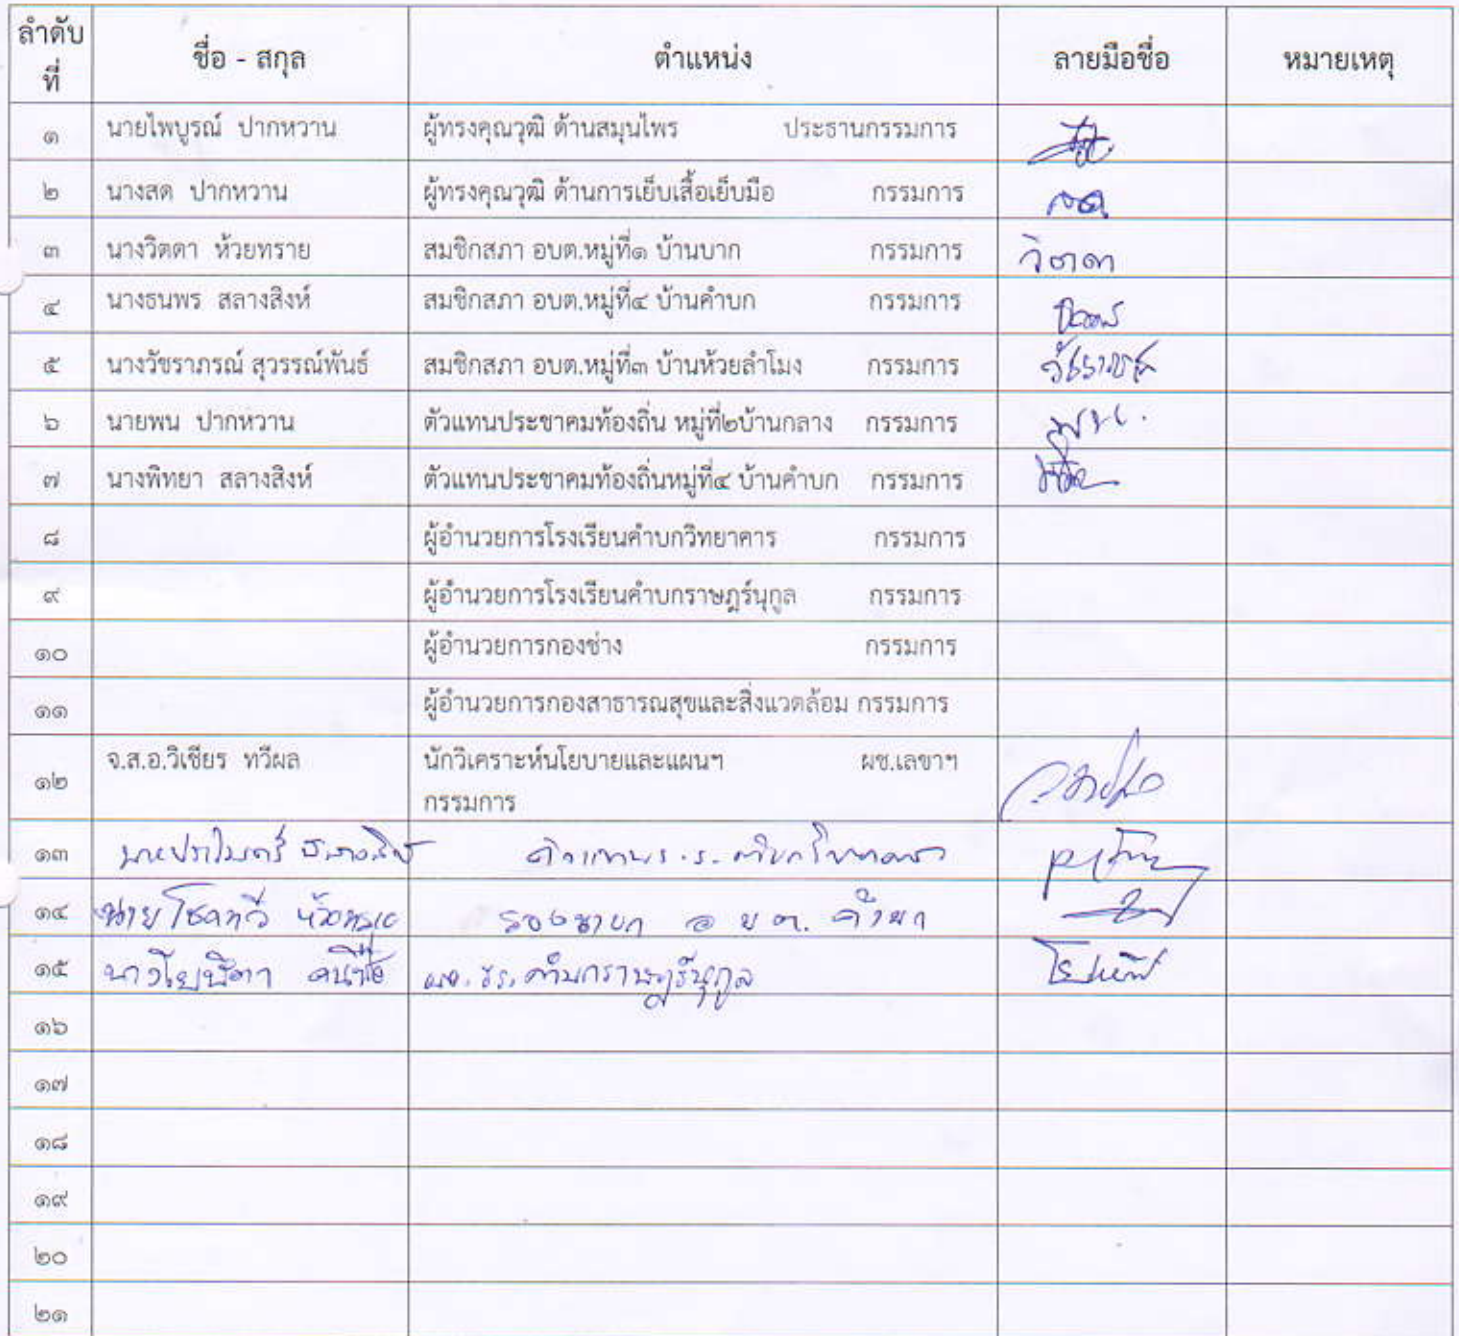 ลำดับที่ ชื่อ - สกุล ตำแหน่ง ลายมือชื่อ หมายเหตุ
๑ นายไพบูรณ์ ปากหวาน ผู้ทรงคุณวุฒิ ด้านสมุนไพร ประธานกรรมการ
๒ นางสด ปากหวาน ผู้ทรงคุณวุฒิ ด้านการเย็บเสื้อเย็บมือ กรรมการ สด
๓ นางวิตดา ห้วยทราย สมชิกสภา อบต.หมู่ที่๑ บ้านบาก กรรมการ วิตดา
๔ นางธนพร สลางสิงห์ สมชิกสภา อบต.หมู่ที่๔ บ้านคำบก กรรมการ
๕ นางวัชราภรณ์ สุวรรณ์พันธ์ สมชิกสภา อบต.หมู่ที่๓ บ้านห้วยลำโมง กรรมการ วัชราภรณ์
๖ นายพน ปากหวาน ตัวแทนประชาคมท้องถิ่น หมู่ที่๒บ้านกลาง กรรมการ
๗ นางพิทยา สลางสิงห์ ตัวแทนประชาคมท้องถิ่นหมู่ที่๔ บ้านคำบก กรรมการ
๘ ผู้อำนวยการโรงเรียนคำบกวิทยาคาร กรรมการ
๙ ผู้อำนวยการโรงเรียนคำบกราษฎร์นุกูล กรรมการ
๑๐ ผู้อำนวยการกองช่าง กรรมการ
๑๑ ผู้อำนวยการกองสาธารณสุขและสิ่งแวดล้อม กรรมการ
๑๒ จ.ส.อ.วิเชียร ทวีผล นักวิเคราะห์นโยบายและแผนฯ ผช.เลขาฯ
กรรมการ
๑๓
๑๔ นายโชคทวี ห้วยทราย รองนายก อบต. คำบก
๑๕ ผอ.รร.คำบกราษฎร์นุกูล
๑๖
๑๗
๑๘
๑๙
๒๐
๒๑